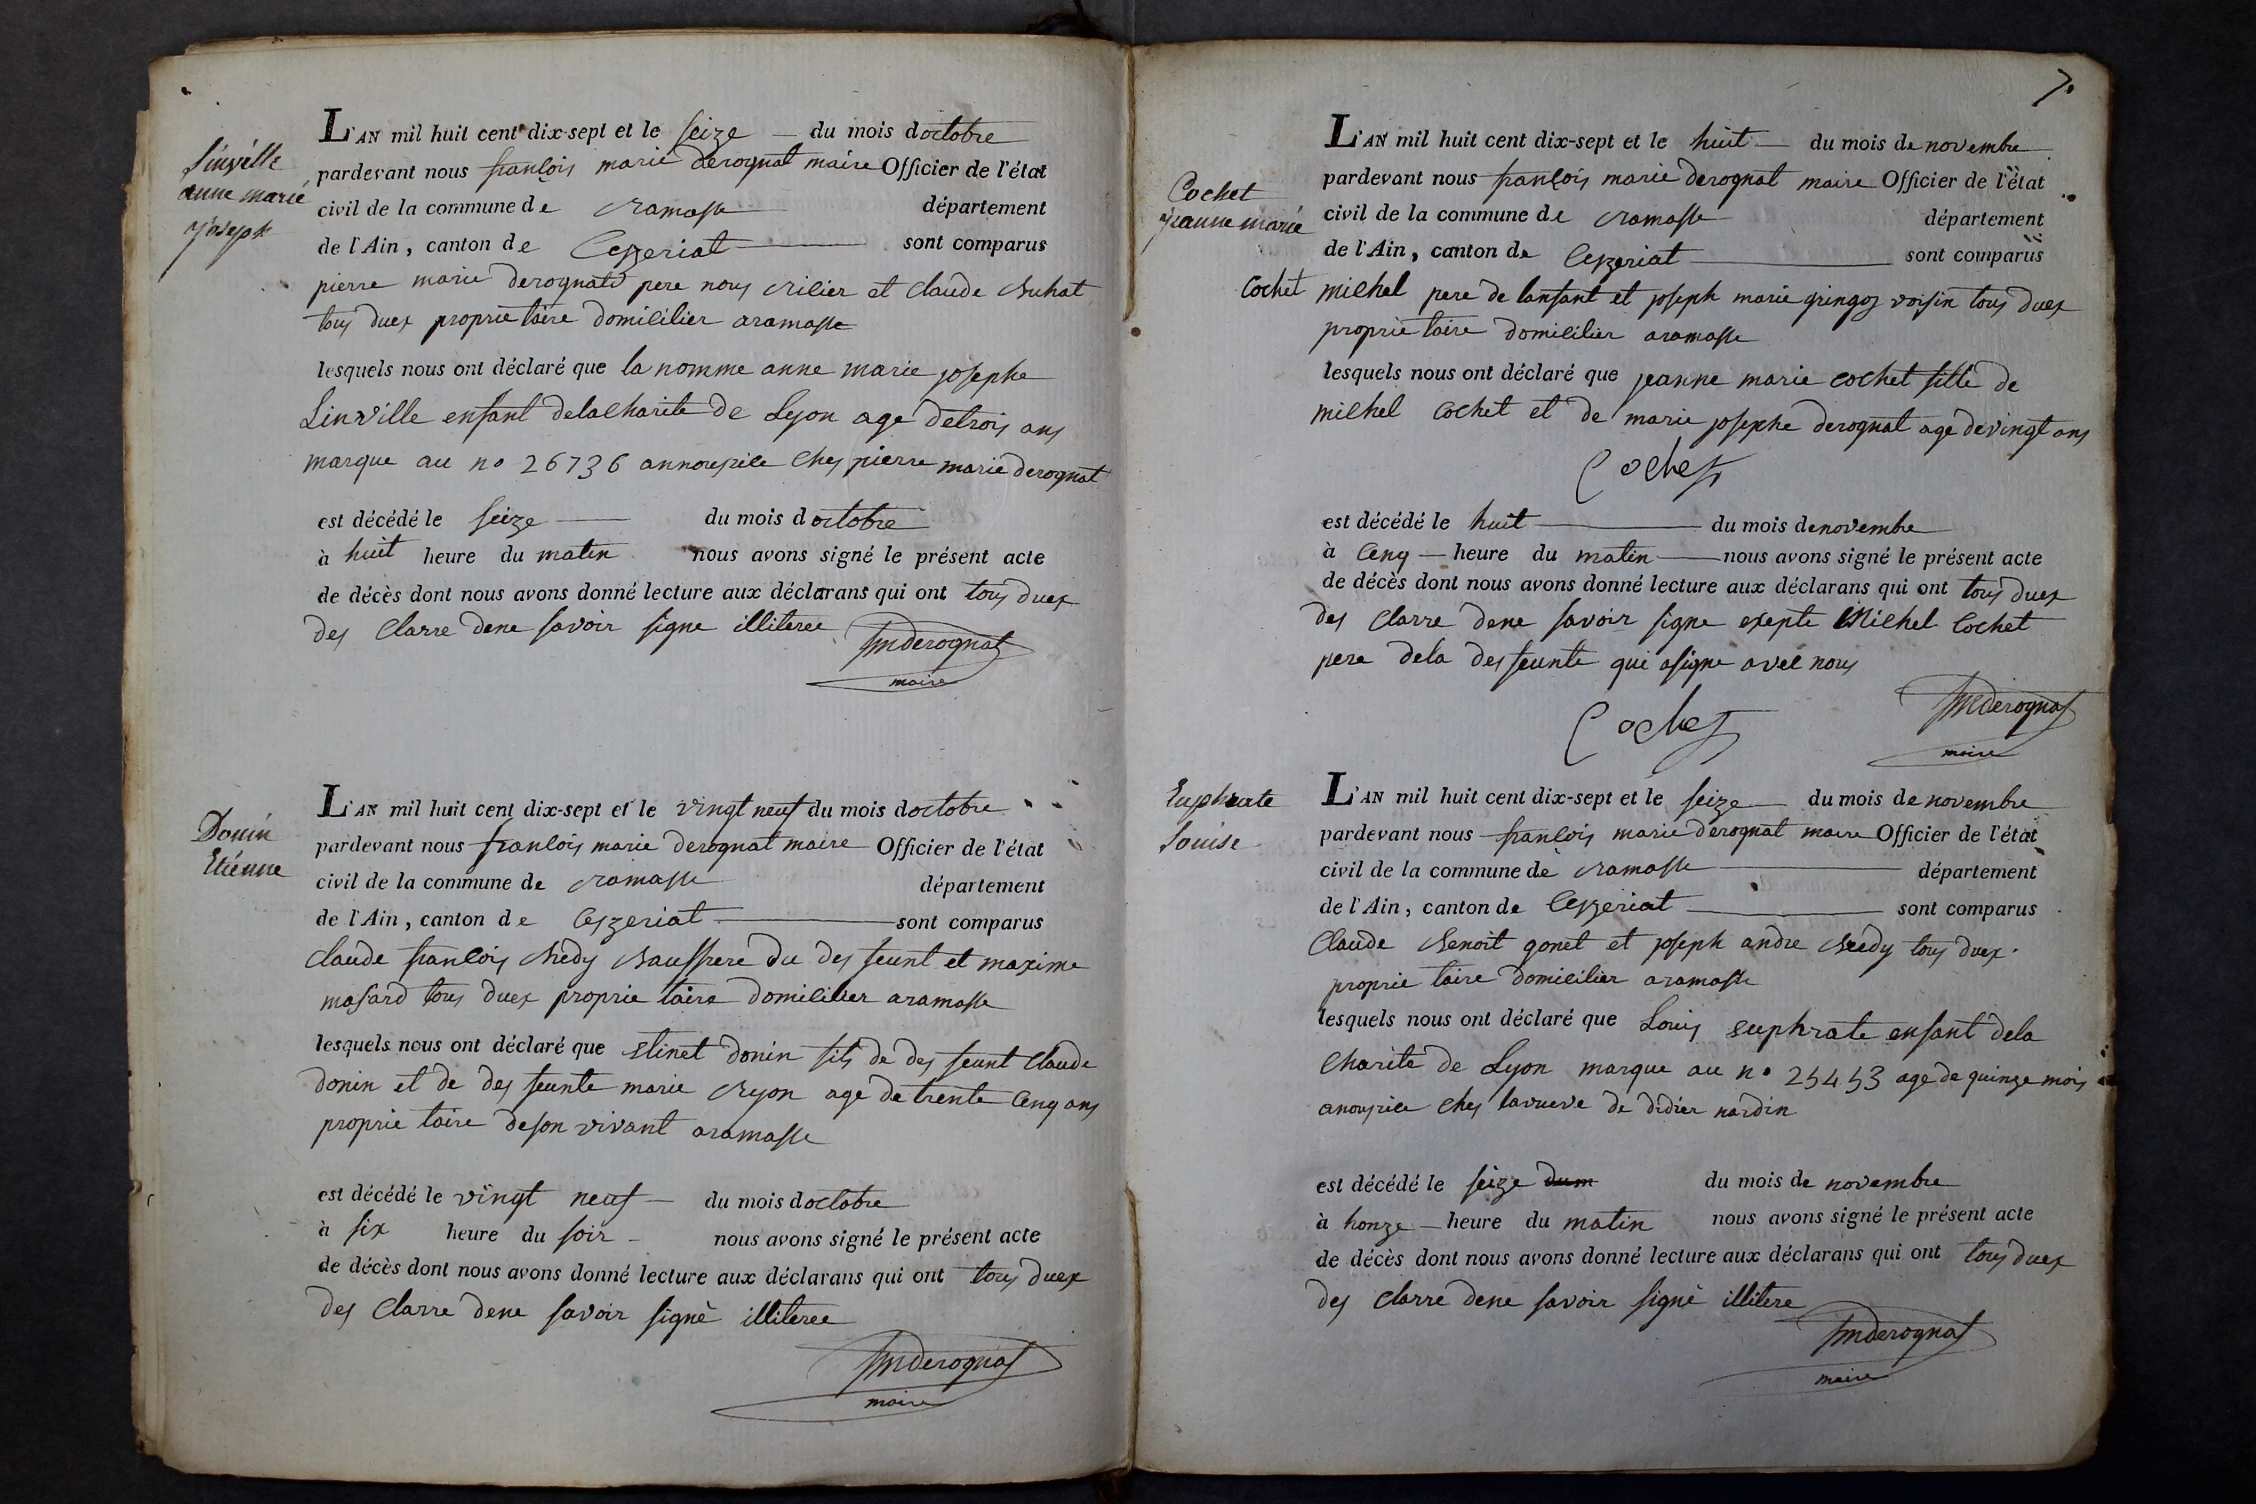 Linville
anne marie
joseph
L'AN mil huit cent dix-sept et le seize du mois doctobre
pardevant nous françois marie derognat maire Officier de l'état
civil de la commune de ramasse département
de l'Ain, canton de Ceyzeriat sont comparus
pierre marie derognat pere et claude
tous duex proprie taire domicilier aramasse
lesquels nous ont déclaré que la nomme anne marie josephe
Linville enfant delacharite de Lyon age detrois ans
marque au no 26736 chez pierre marie derognat
est décédé le seize du mois doctobre
à huit heure du matin nous avons signé le présent acte
de décès dont nous avons donné lecture aux déclarans qui ont tous duex
des clarre dene savoir signe illiteree
fmderognat
maire
Donin
Etienne
L'AN mil huit cent dix-sept et le vingt neuf du mois doctobre
pardevant nous françois marie derognat maire Officier de l'état
civil de la commune de ramasse département
de l'Ain, canton de Ceyzeriat sont comparus
claude françois du des feunt et maxime
tous duex proprie taire domicilier aramasse
lesquels nous ont déclaré que donin fils de des feunt claude
donin et de des feunte marie age de trente cenq ans
proprie taire deson vivant aramasse
est décédé le vingt neuf du mois doctobre
à six heure du soir nous avons signé le présent acte
de décès dont nous avons donné lecture aux déclarans qui ont tous duex
des clarre dene savoir signè illiteree
fmderognat
maire
7.
Cochet
jeanne marie
L'AN mil huit cent dix-sept et le huit du mois de novembre
pardevant nous françois marie derognat maire Officier de l'état
civil de la commune de ramasse département
de l'Ain, canton de Ceyzeriat sont comparus
Cochet michel pere de lanfant et joseph marie voisin tous duex
proprie taire domicilier aramasse
lesquels nous ont déclaré que jeanne marie cochet fille de
michel cochet et de marie josephe derognat age de vingt ans
Cochet
est décédé le huit du mois de novembre
à Cenq heure du matin nous avons signé le présent acte
de décès dont nous avons donné lecture aux déclarans qui ont tous duex
des clarre dene savoir signe exepte Michel Cochet
pere dela des feunte qui asigne avec nous
Cochet
fmderognat
maire
Euphrate
Louise
L'AN mil huit cent dix-sept et le seize du mois de novembre
pardevant nous françois marie derognat maire Officier de l'état
civil de la commune de ramasse département
de l'Ain, canton de Ceyzeriat sont comparus
Claude Benoit gonet et joseph andre tous duex
proprie taire domicilier aramasse
lesquels nous ont déclaré que Louis euphrate enfant dela
charité de Lyon marque au no 25453 age de quinze mois
chez laveuve de didier nardin
est décédé le seize dum du mois de novembre
à honze heure du matin nous avons signé le présent acte
de décès dont nous avons donné lecture aux déclarans qui ont tous duex
des clarre dene savoir signè illitere
fmderognat
maire